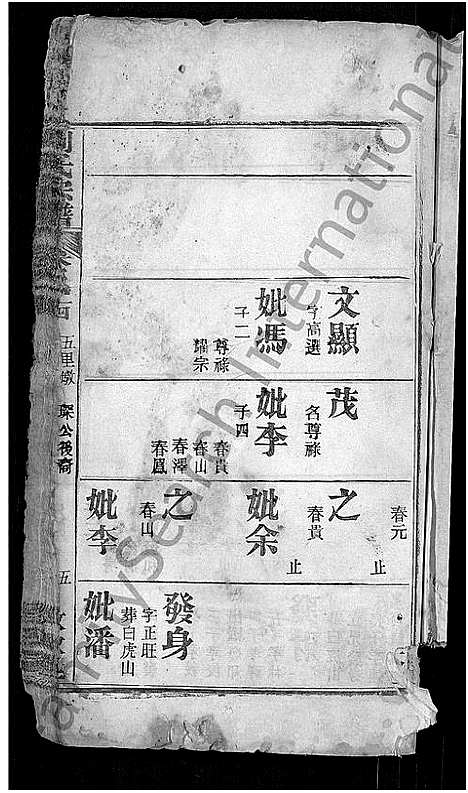 文顯
字高選
妣馮
子二
尊祿
耀宗
茂
名尊祿
妣李
子四
春貴
春山
春澤
春鳳
春元
止
之
春貴
妣余
止
之
春山
妣李
發身
字正旺
葬白虎山
妣潘
氏宗譜
五里墩
公後裔
五
FamilySearch International